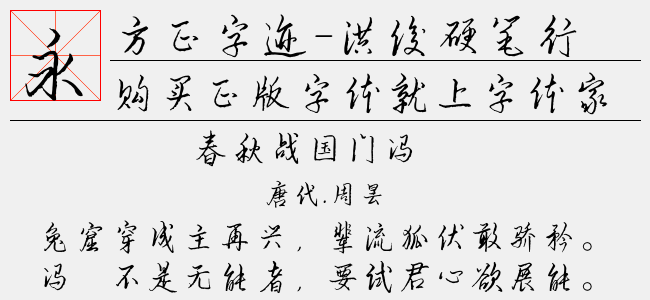 永
方正字迹-洪俊硬笔行
购买正版字体就上字体家
春秋战国门冯
唐代.周昙
兔窟穿成主再兴，辈流狐伏敢骄矜。
冯 不是无能者，要试君心欲展能。